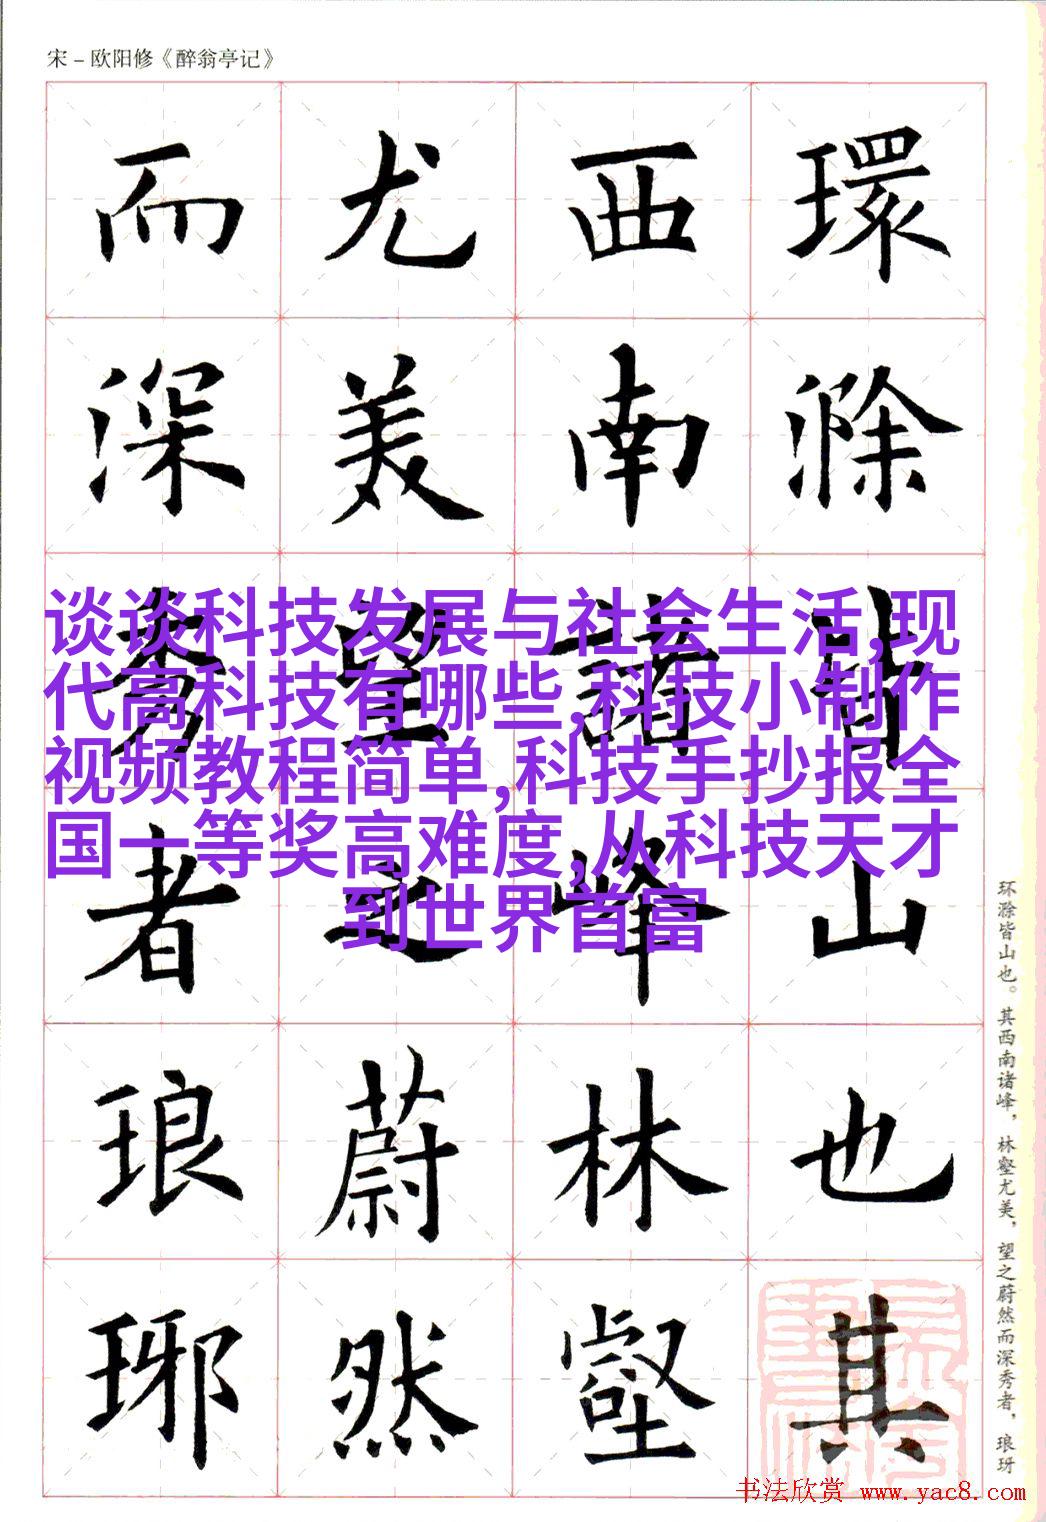 宋－欧阳修《醉翁亭记》
環滁皆山也其
西南諸峰林壑
尤美望之蔚然
而深秀者琅琊
谈谈科技发展与社会生活,现
代高科技有哪些,科技小制作
视频教程简单,科技手抄报全
国一等奖高难度,从科技天才
到世界首富
环滁皆山也。其西南诸峰，林壑尤美，望之蔚然而深秀者，琅玡
书法欣赏 www.yac8.com